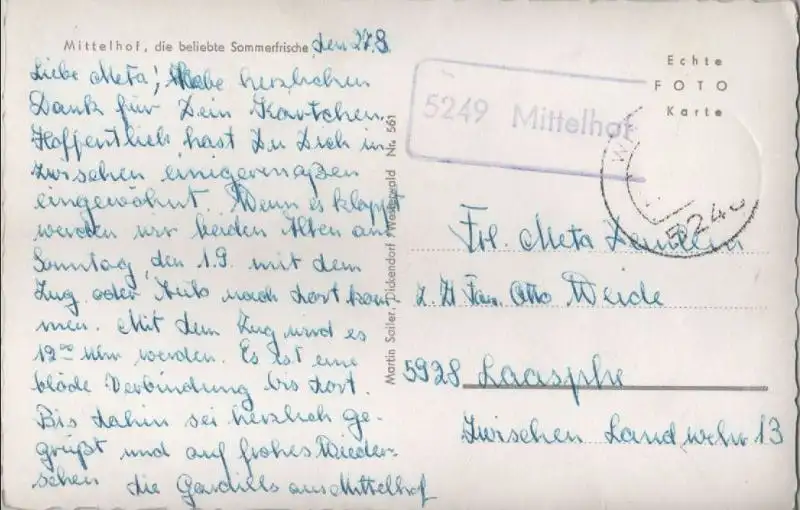 Mittelhof, die beliebte Sommerfrische, den 27.8.
Liebe Meta! Habe herzlichen
Dank für Dein Kärtchen.
Hoffentlich hast Du Dich in-
zwischen einigermaßen
eingewöhnt. Wenn es klappt
werden wir beiden Alten am
Sonntag, den 1.9. mit dem
Zug oder Auto nach dort kom-
men. Mit dem Zug wird es
12⁰⁰ Uhr werden. Es ist eine
blöde Verbindung bis dort.
Bis dahin sei herzlich ge-
grüßt und auf frohes Wieder-
sehen die aus Mittelhof
Martin Sailer, Dickendorf / Westerwald Nr. 561
Echte
FOTO
Karte
5249 Mittelhof
5240
Frl. Meta
z. Zt Fam. Otto Weide
5928 Laasphe
Zwischen Landwehr 13